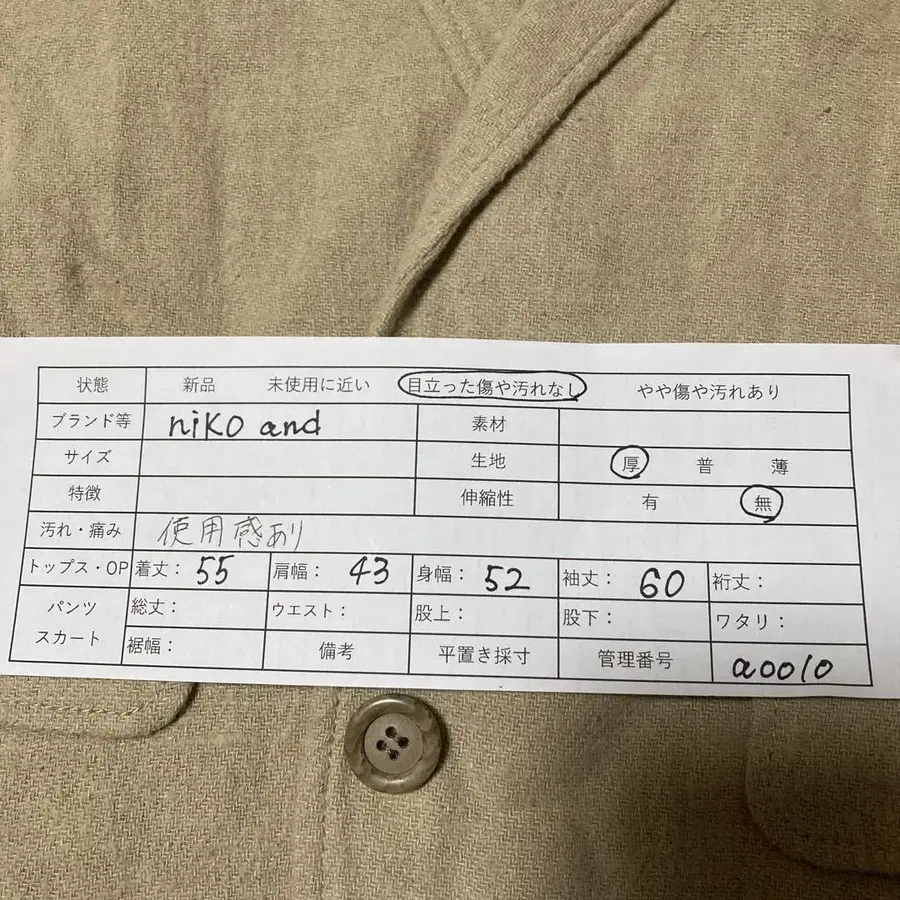 状態 新品 未使用に近い 目立った傷や汚れなし やや傷や汚れあり
ブランド等 niko and 素材
サイズ 生地 厚 普 薄
特徴 伸縮性 有 無
汚れ・痛み 使用感あり
トップス・OP 着丈： 55 肩幅： 43 身幅： 52 袖丈： 60 裄丈：
パンツ スカート 総丈： ウエスト： 股上： 股下： ワタリ：
裾幅： 備考 平置き採寸 管理番号 a0010